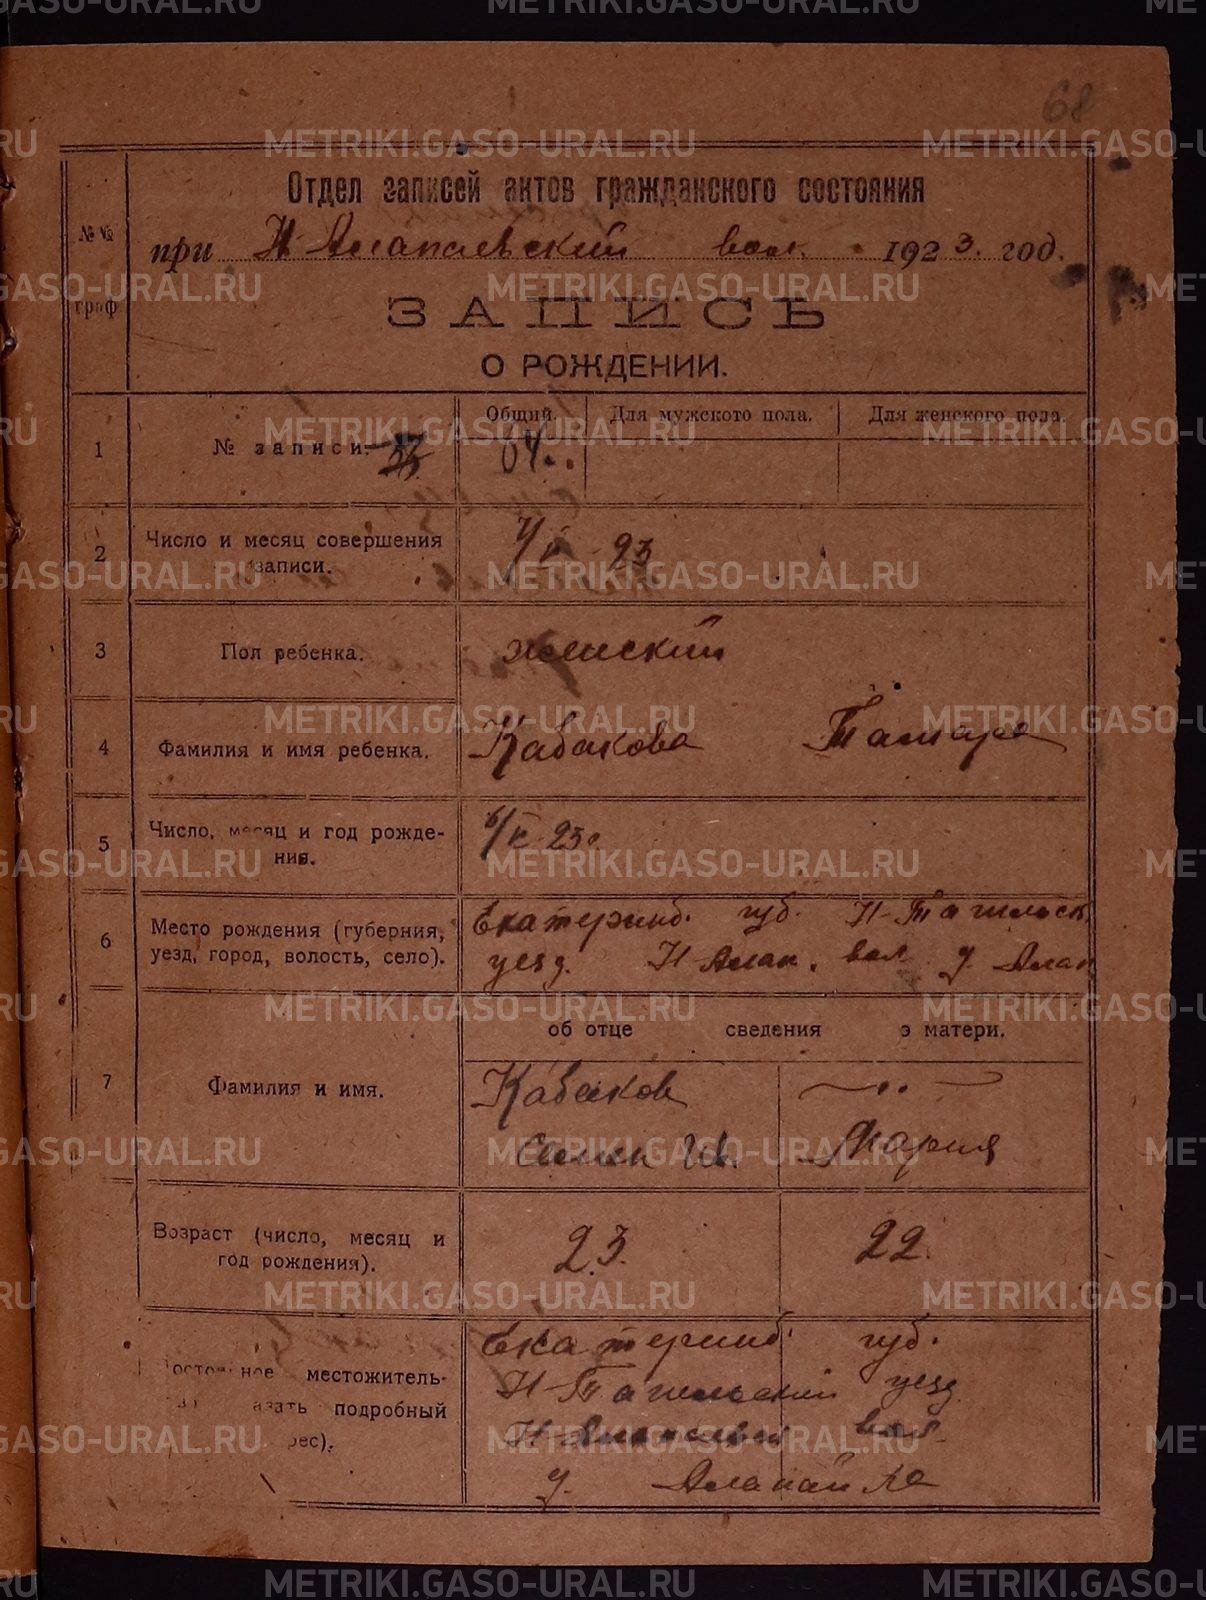 68
Отдел записей актов гражданского состояния
№№ граф
при Н-Алапаевский вол. 1923 год.
ЗАПИСЬ
О РОЖДЕНИИ.
Общий. Для мужского пола. Для женского пола.
1 № записи. 64
2 Число и месяц совершения записи.
7/V-23
3 Пол ребенка. женский
4 Фамилия и имя ребенка. Кабакова Тамара
5 Число, месяц и год рождения.
6/V-23г.
6 Место рождения (губерния, уезд, город, волость, село).
Екатеринб. губ. Н-Тагильск.
уезд. Н-Алап. вол д. Алап
об отце сведения о матери.
7 Фамилия и имя.
Кабаков
Семен Ив. Мария
Возраст (число, месяц и год рождения).
23. 22.
местожитель-
подробный
рес).
Екатеринб. губ.
Н-Тагильский уезд.
Н-Алапаевск вол.
д. Алапаиха
METRIKI.GASO-URAL.RU